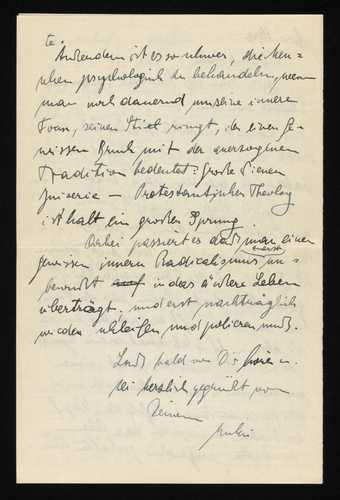 te.
Ausserdem ist es so schwer, die Men=
schen psychologisch zu behandeln, wenn
man noch dauernd um seine innere
Form, seinen Stil ringt, der einen Ge=
wissen Bruch mit der anerzogenen
Tradition bedeutet: Große Wiener
– Protestantischer Theolog
ist halt ein großer Sprung.
Dabei passiert es dass man einen
zuerst
gewissen innern Radikalismus un=
bewußt auf in das äußere Leben
überträgt. und erst nachträglich
wieder schleifen und polieren muß.
Laß bald von Dir hören u.
sei herzlich gegrüßt von
Deinem